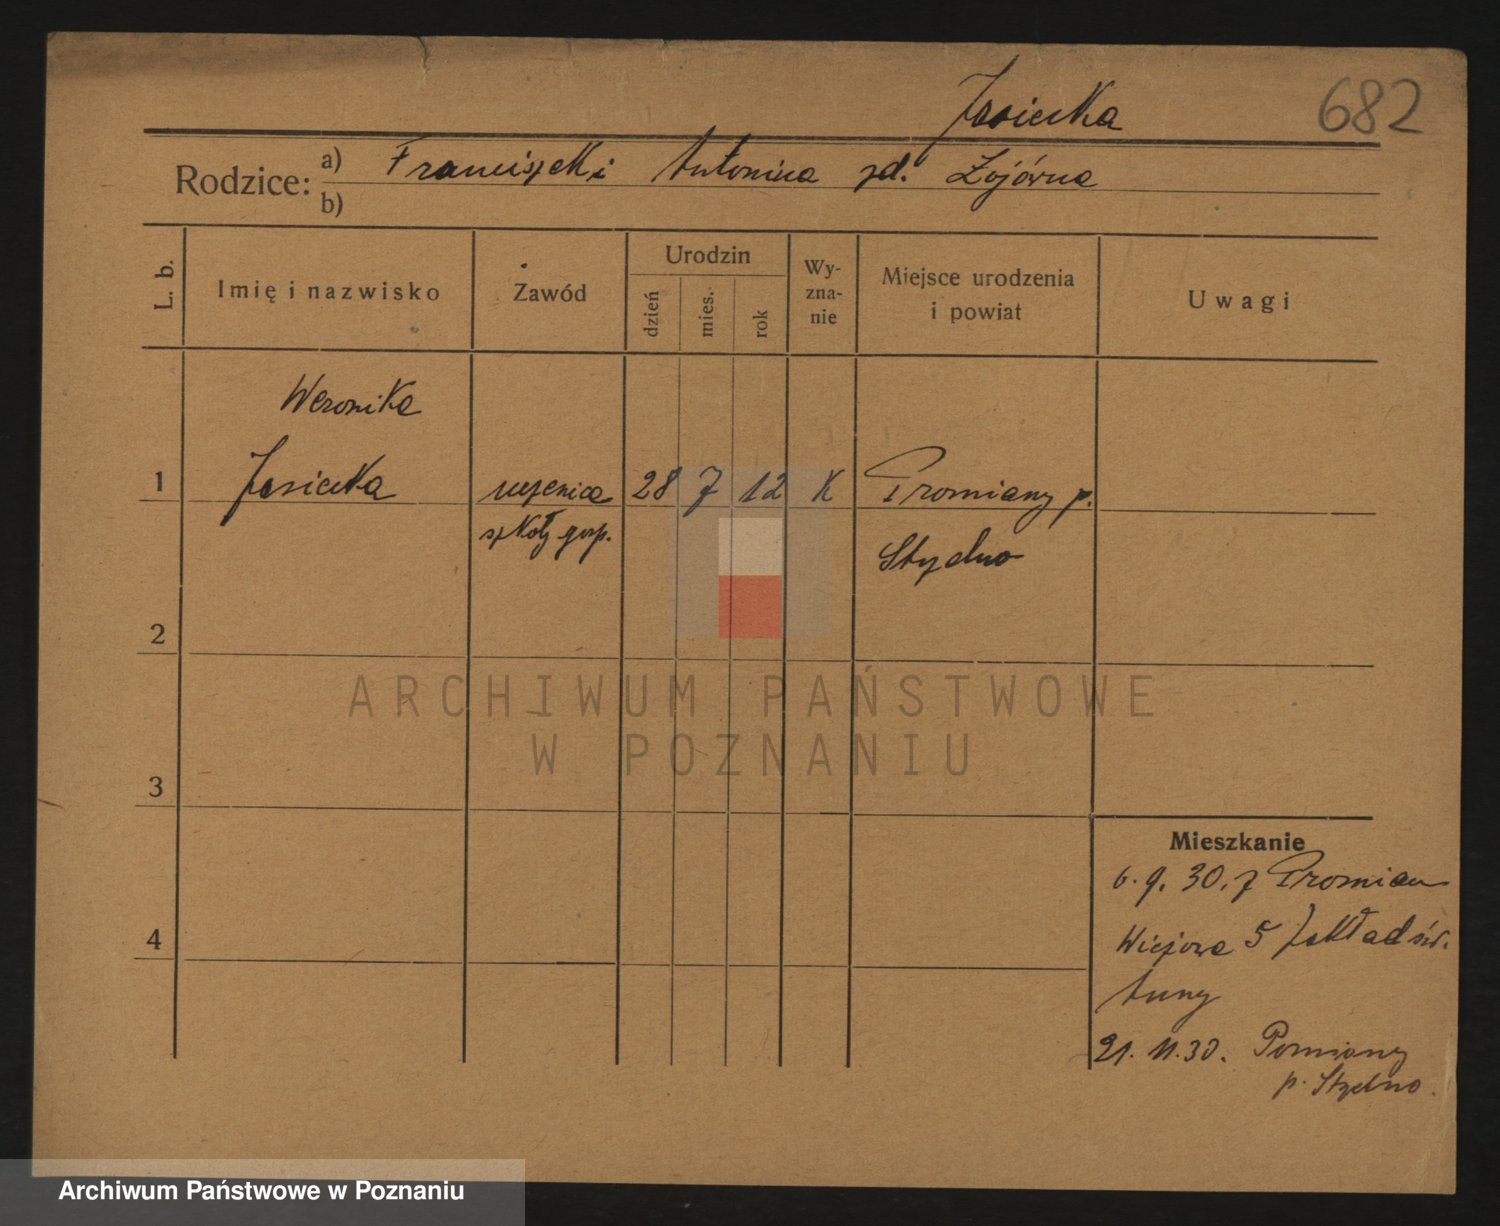 Jasiecka 682
Rodzice: a) Franciszek i Antonina zd. Zojówna
b)
L. b. Imię i nazwisko Zawód Urodzin dzień mies. rok Wy-zna-nie Miejsce urodzenia i powiat Uwagi
Weronika
1 Jasiecka uczenica 28 7 12 K Promiany p.
szkoły gosp. Stydno
2
ARCHIWUM PAŃSTWOWE
W POZNANIU
3
Mieszkanie
6. 9. 30. z Promian
4 Wiejowa 5 Zakład św.
Anny
21. 11. 30. Pomiany
p.
Archiwum Państwowe w Poznaniu